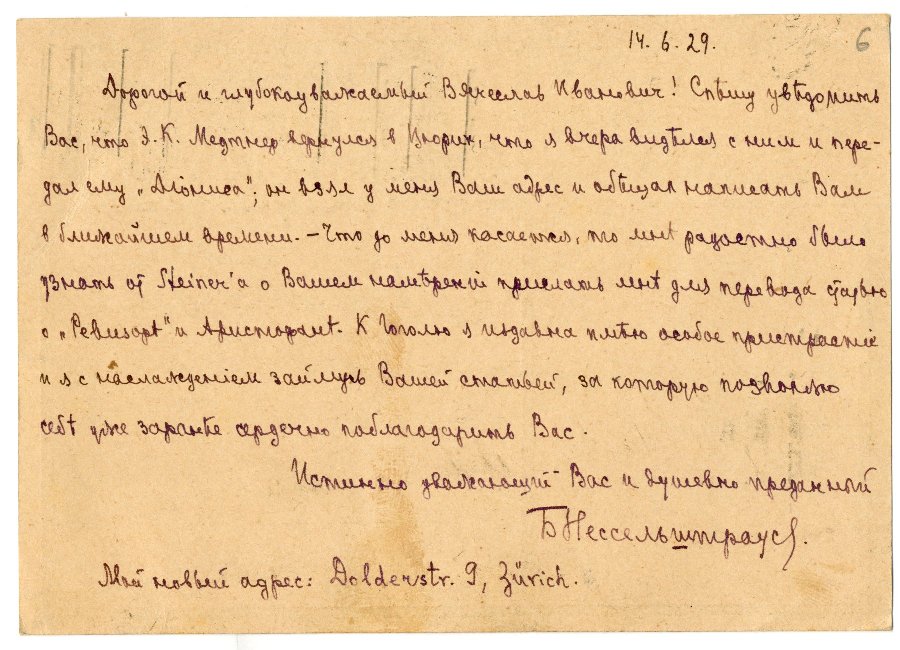 14. 6. 29.
6
Дорогой и глубокоуважаемый Вячеслав Иванович! Спѣшу увѣдомить
Вас, что Э. К. Метнер вернулся в Цюрих, что я вчера видѣлся с ним и пере-
дал ему „Дiониса“; он взял у меня Ваш адрес и обѣщал написать Вам
в ближайшем времени. – Что до меня касается, то мнѣ радостно было
узнать от Steiner'а о Вашем намѣренiи прислать мнѣ для перевода статью
о „Ревизорѣ“ и Аристофанѣ. К Гоголю я издавна питаю особое пристрастiе
и я с наслажденiем займусь Вашей статьей, за которую позволяю
себѣ уже заранѣе сердечно поблагодарить Вас.
Истинно уважающiй Вас и душевно преданный
Б Нессельштраус.
Мой новый адрес: Dolderstr. 9, Zürich.